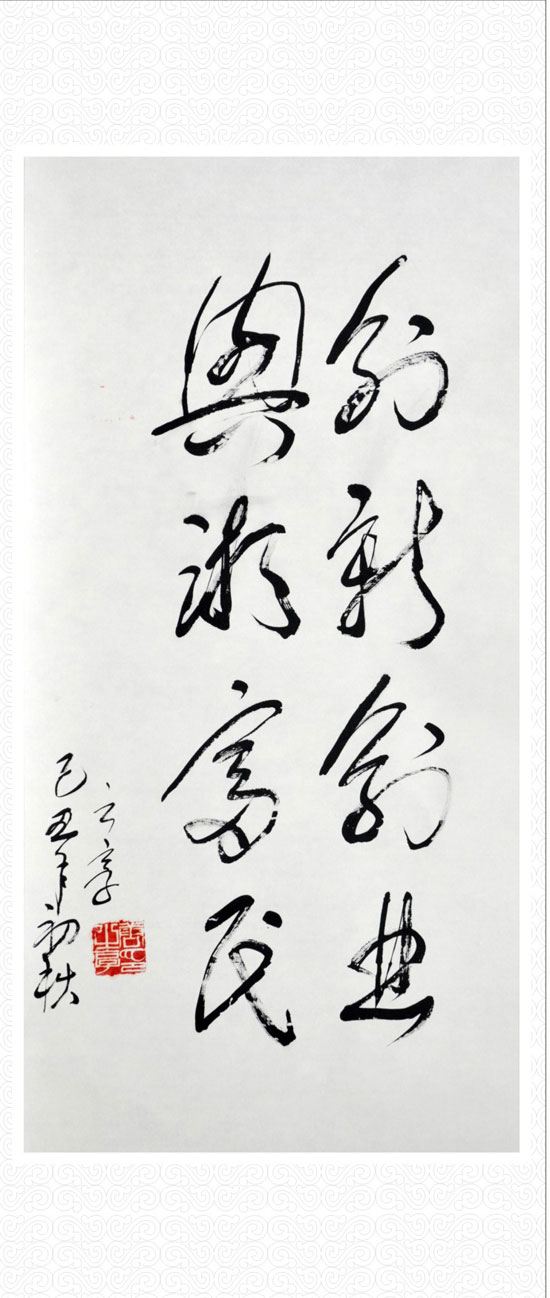 创新创业
兴湘富民
己丑年初秋